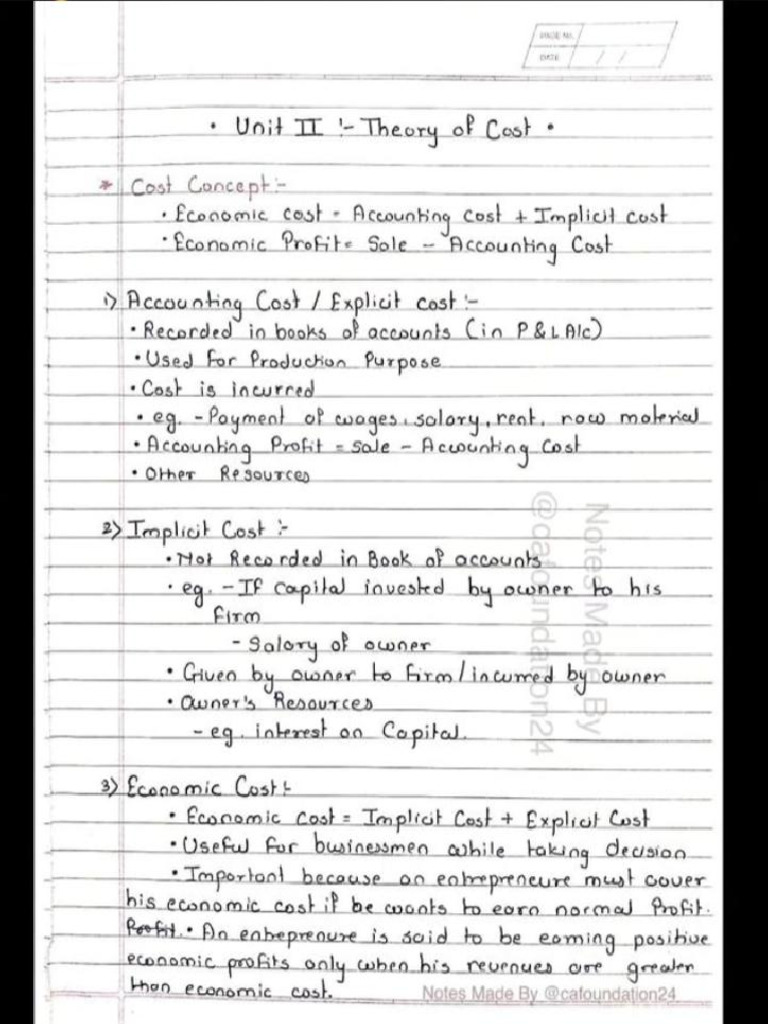 PAGE NO.
DATE / /
• Unit II :- Theory of Cost •
* Cost Concept :-
• Economic cost = Accounting cost + Implicit cost
• Economic Profit = Sale - Accounting Cost
1) Accounting Cost / Explicit cost :-
• Recorded in books of accounts (in P & L A/c)
• Used for Production Purpose
• Cost is incurred
• eg. - Payment of wages, salary, rent, raw material
• Accounting Profit = Sale - Accounting Cost
• Other Resources
2) Implicit Cost :-
• Not Recorded in Book of accounts
• eg. - If capital invested by owner to his
firm
- Salary of owner
• Given by owner to firm / incurred by owner
• Owner's Resources
- eg. interest on Capital.
3) Economic Cost :-
• Economic cost = Implicit Cost + Explicit Cost
• Useful for businessmen while taking decision
• Important because an entrepreneure must cover
his economic cost if he wants to earn normal Profit.
Profit. • An entreprenure is said to be earning positive
economic profits only when his revenues are greater
than economic cost.
Notes Made By @cafoundation24
Notes Made By
@cafoundation24